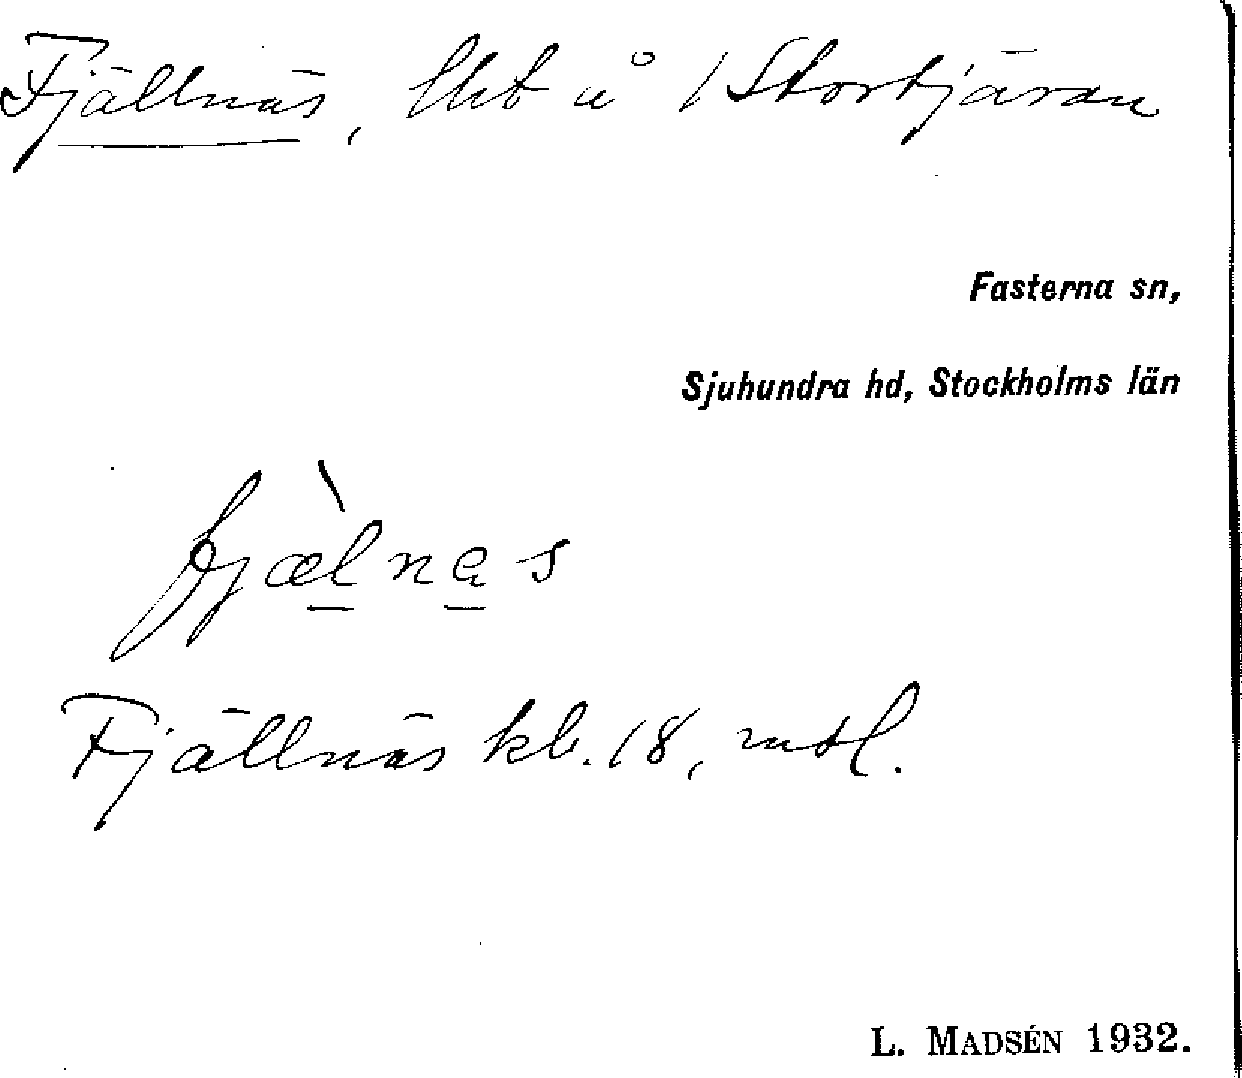 Fjällnäs, lht u° 1 Stortjäran
Fasterna sn,
Sjuhundra hd, Stockholms län
fjælnas
Fjällnäs kb. 18, mtl.
L. MADSÉN 1932.